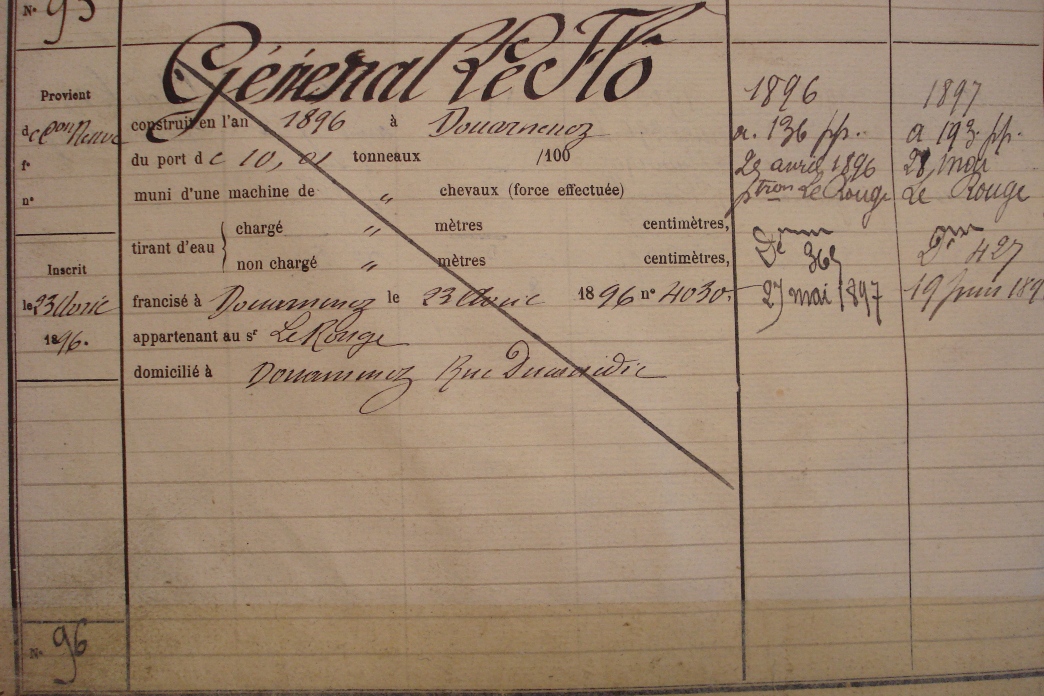 N° 95
Général Le Flô
Provient
d c^on Neuve
f°
n°
Inscrit
le 23 Avril
1896.
construit en l'an 1896 à Douarnenez
du port de 10,01 tonneaux /100
muni d'une machine de " chevaux (force effectuée)
tirant d'eau { chargé " mètres centimètres,
non chargé " mètres centimètres,
francisé à Douarnenez le 23 Avril 1896 n° 4030.
appartenant au s^r Le Rouge
domicilié à Douarnenez Rue
1896
a. 136 pp.
29 avril 1896
p^tron Le Rouge
D^e 369
27 mai 1897
1897
a 193. pp.
28 mai
Le Rouge
D^e 427
19 juin 189
N° 96